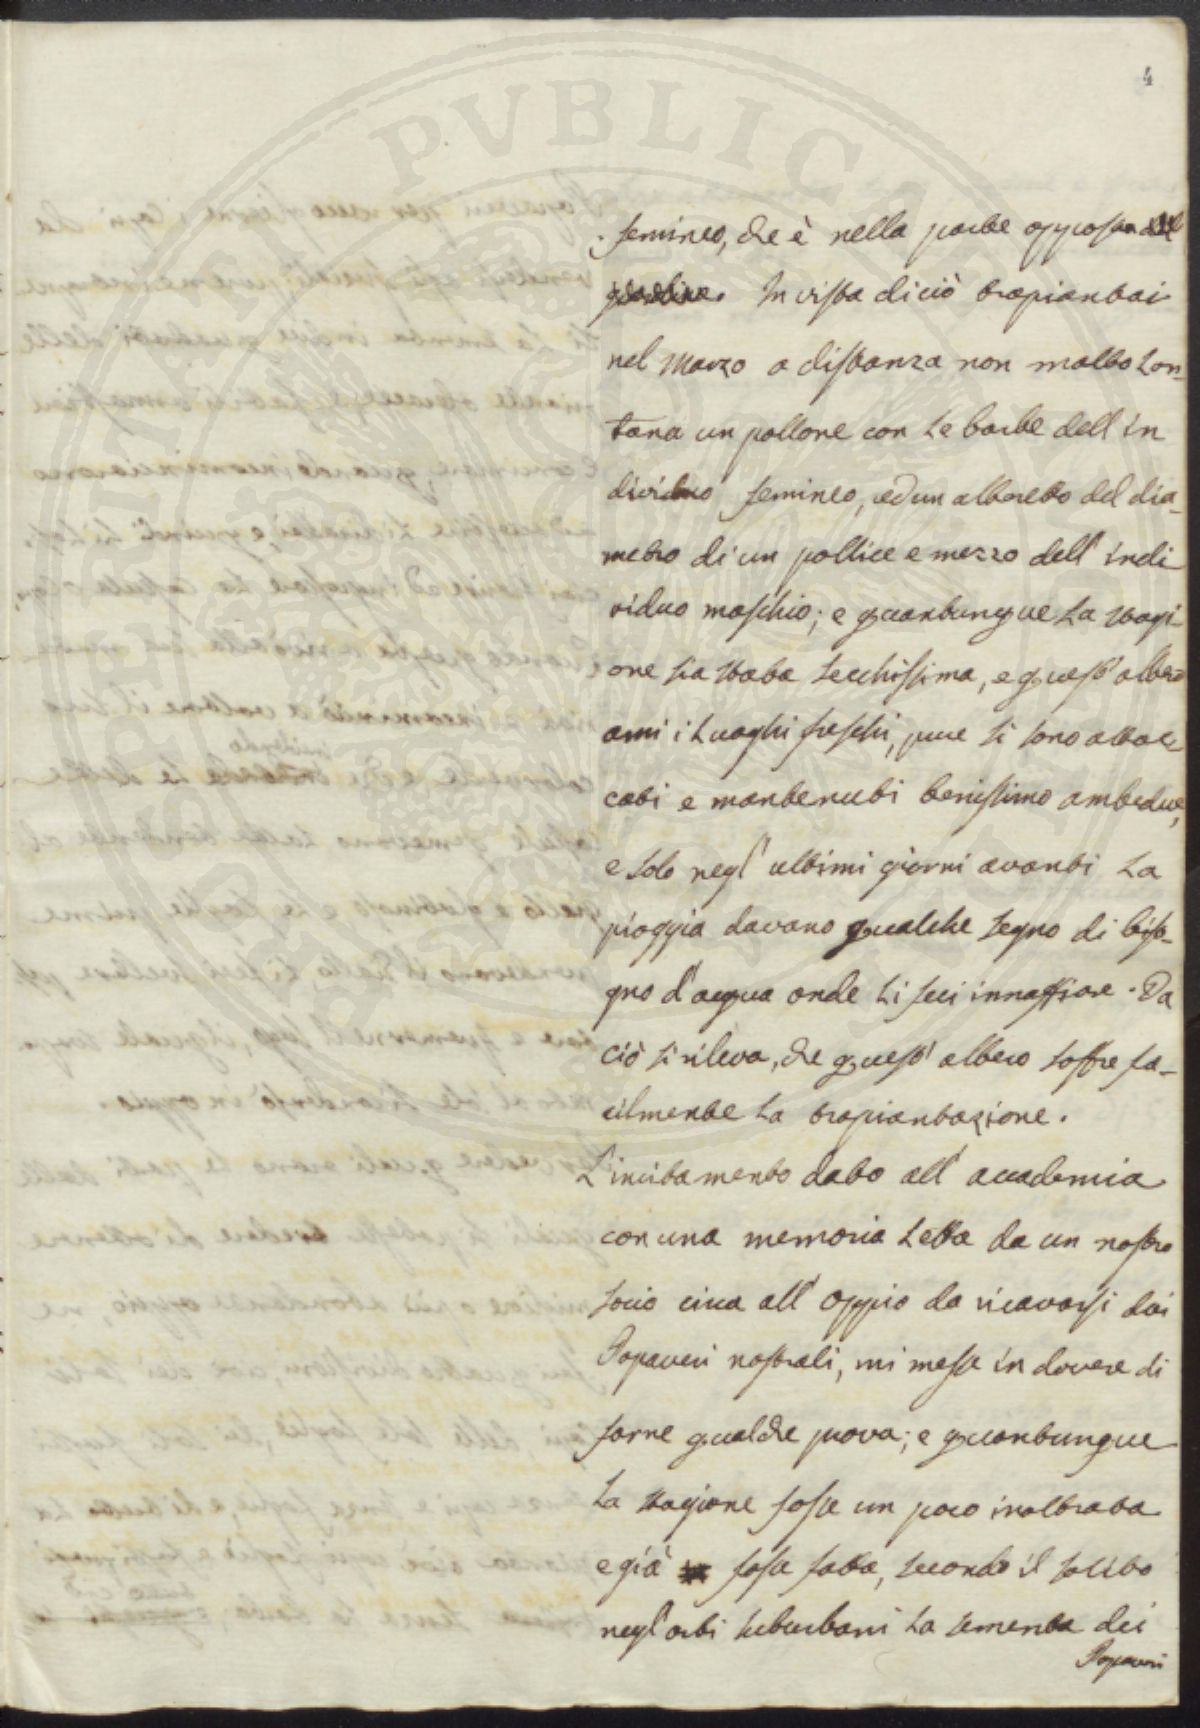 4
femineo, che è nella parte opposta del
giardino. In vista di ciò trapiantai
nel Marzo a distanza non molto lon-
tana un pollone con le barbe dell'in
dividuo femineo, ed un alberetto del dia-
metro di un pollice e mezzo dell'indi
viduo maschio; e quantunque la stagi
one sia stata secchissima, e quest'albero
ami i luoghi freschi, pure si sono attac-
cati e mantenuti benissimo ambedue,
e solo negl'ultimi giorni avanti la
pioggia davano qualche segno di biso-
gno d'acqua onde li feci innaffiare. Da
ciò si rileva, che quest'albero soffre fa-
cilmente la trapiantazione.
L'incitamento dato all'accademia
con una memoria letta da un nostro
socio circa all'oppio da ricavarsi dai
Papaveri nostrali, mi messe in dovere di
farne qualche prova; e quantunque
la stagione fosse un poco inoltrata
e già fosse fatta, secondo il solito
negl'orti suburbani la sementa dei
Papaveri
PVBLICAE